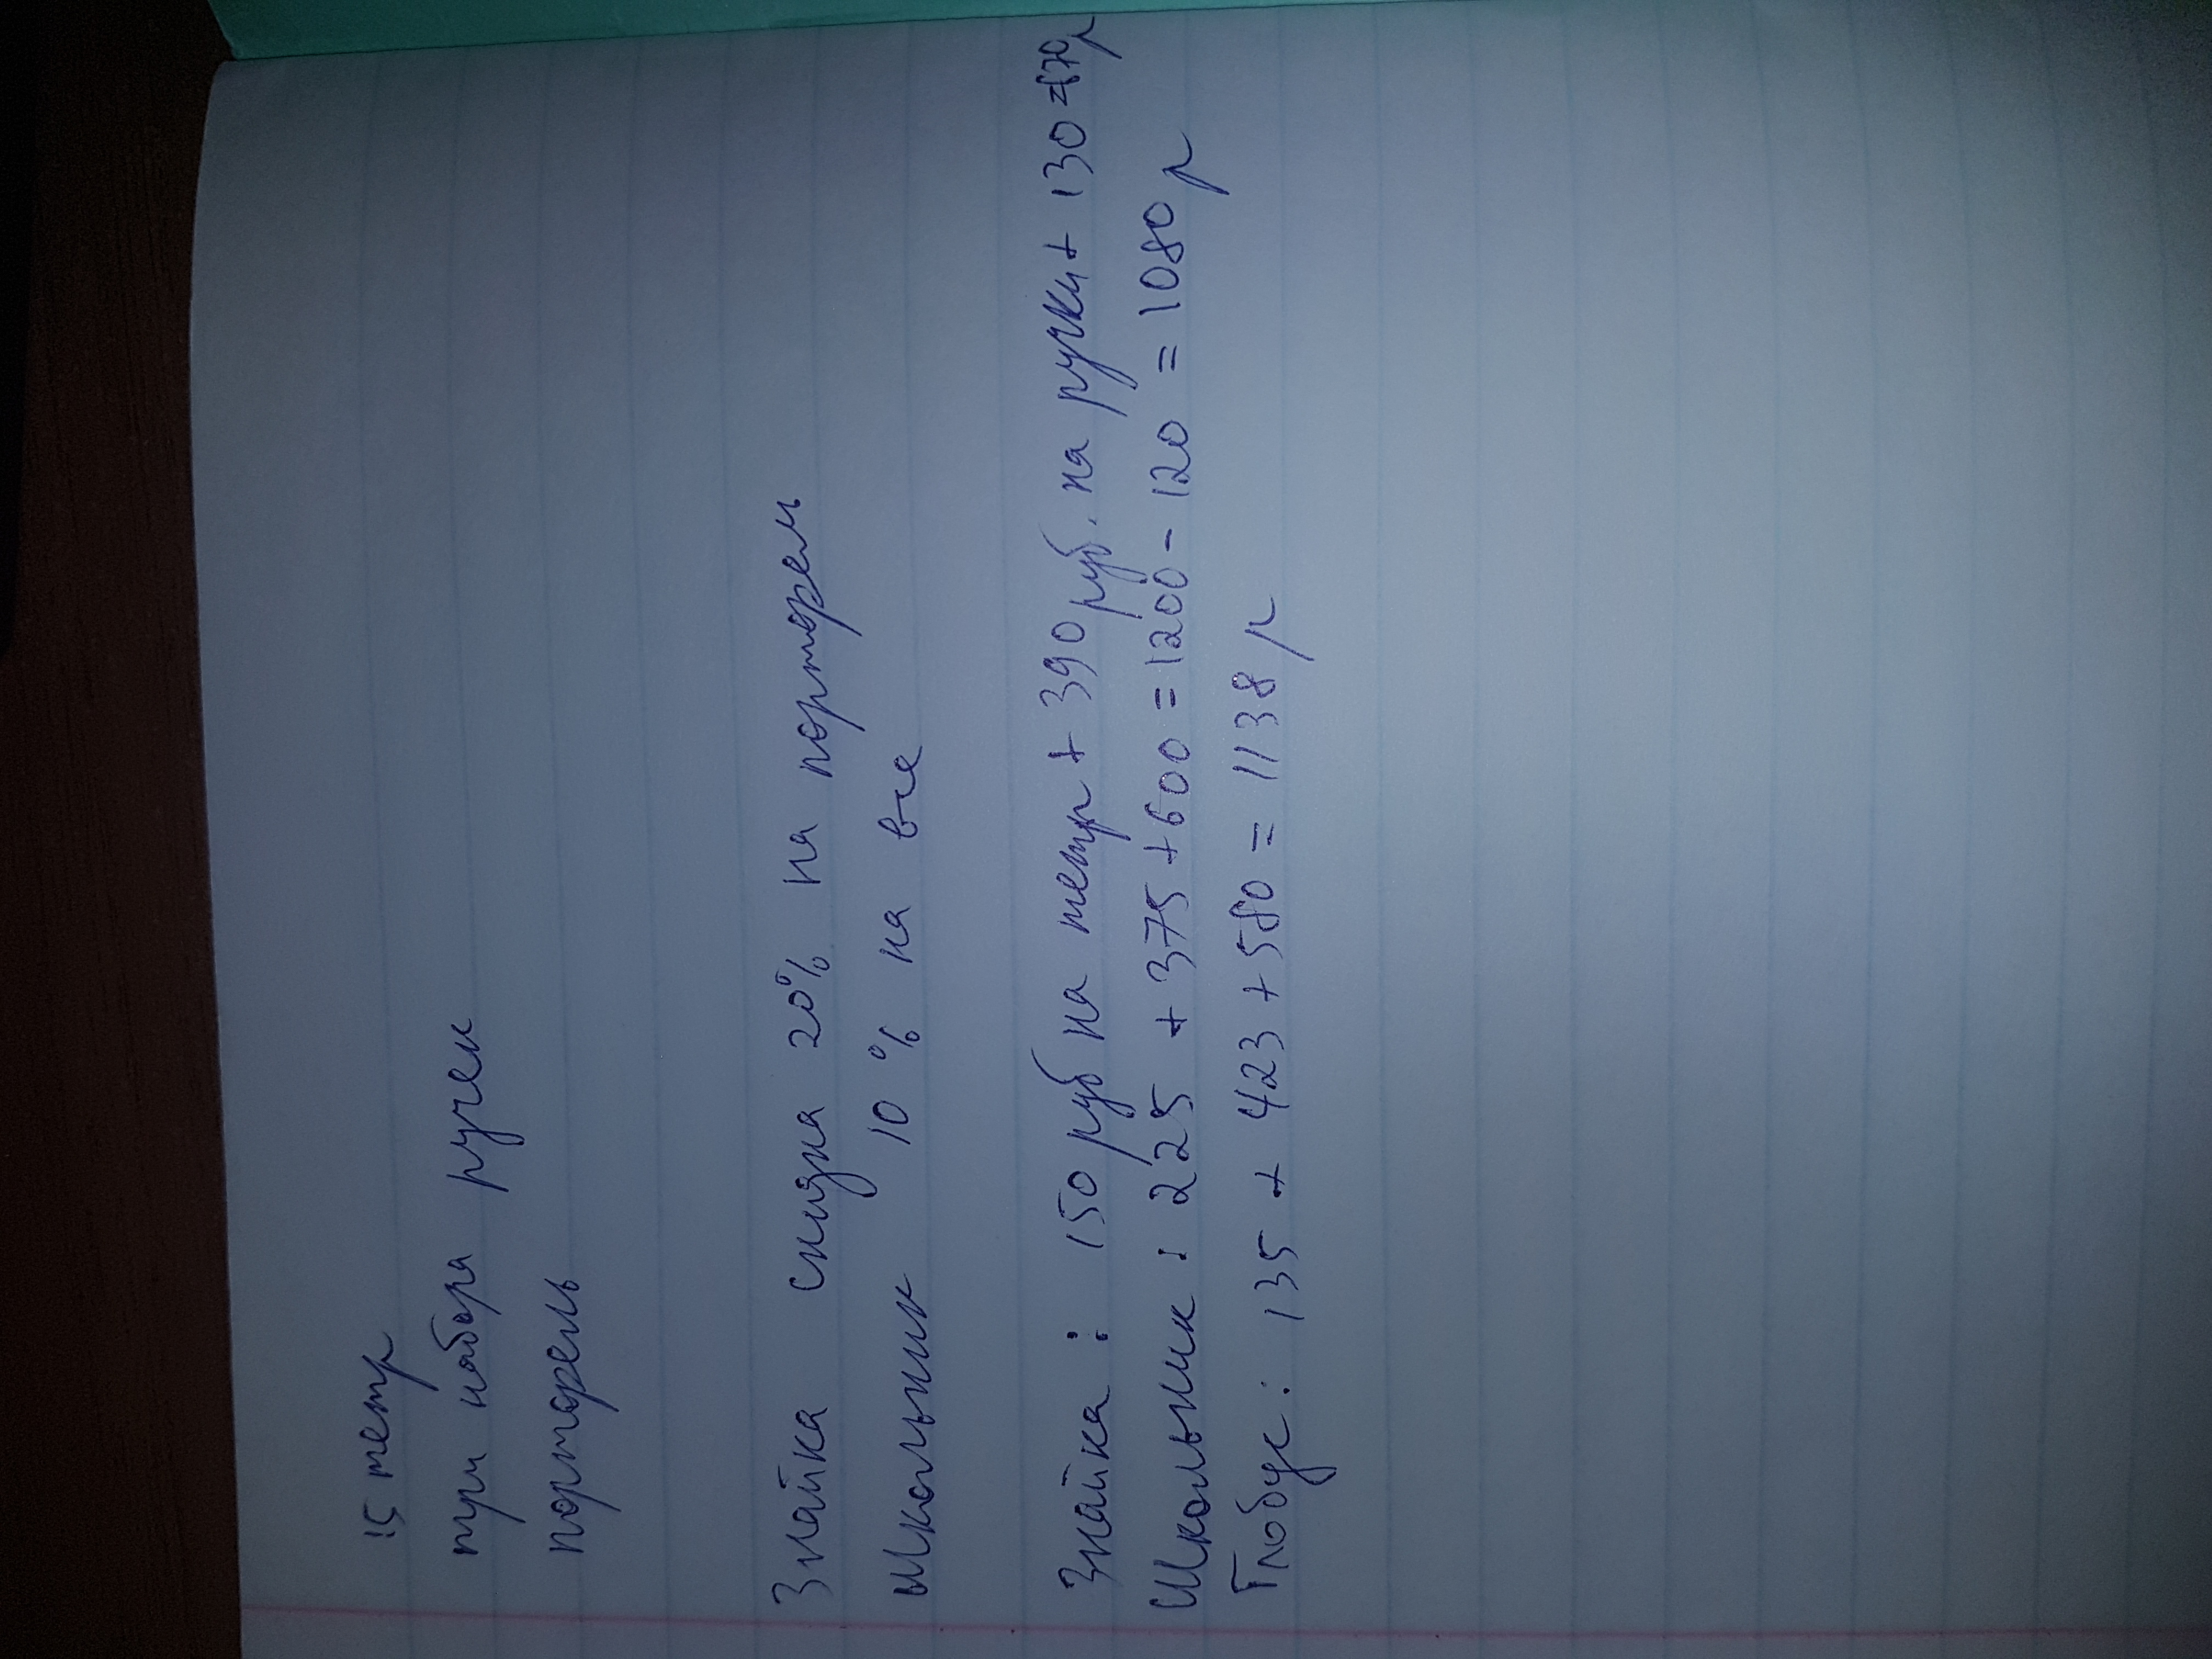 15 тетр
три набора ручек
портфель
Знайка скидка 20% на портфель
Школьник 10% на все
Знайка: 150 руб на тетр + 390 руб. на ручки + 130 =
Школьник: 225 + 375 + 600 = 1200 - 120 = 1080 р
Глобус: 135 + 423 + 580 = 1138 р